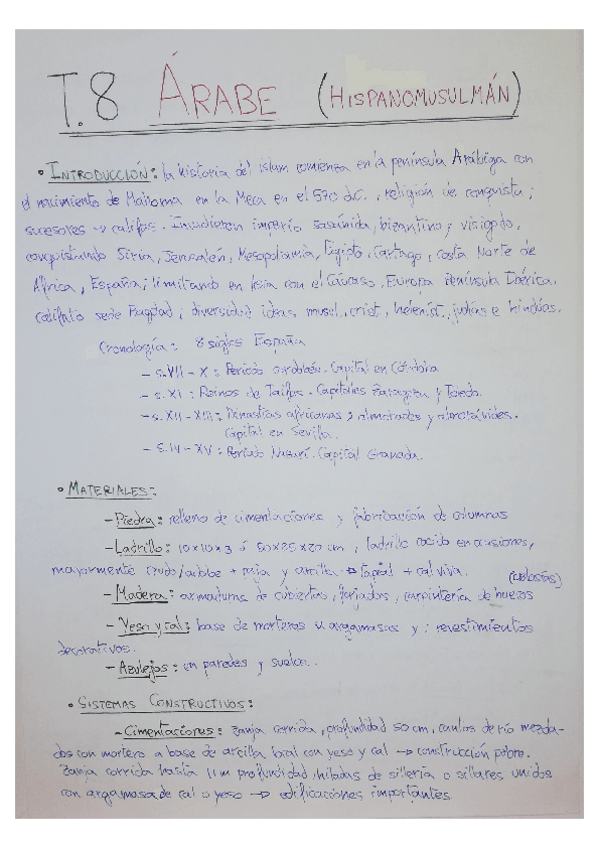 T.8 ÁRABE (HISPANOMUSULMÁN)
• INTRODUCCIÓN: la historia del islam comienza en la península Arábiga con
el nacimiento de Mahoma en la Meca en el 570 d.C., religión de conquista;
sucesores → califas. Invadieron imperio sasánida, bizantino y visigodo,
conquistando Siria, Jerusalén, Mesopotamia, Egipto, Cartago, costa Norte de
África, España; limitando en Asia con el Cáucaso, Europa Península Ibérica.
Califato sede Bagdad, diversidad ideas musul., crist., helenist., judías e hindúas.
Cronología: 8 siglos España
- s.VII - X: Período cordobés. Capital en Córdoba
- s. XI: Reinos de Taifas. Capitales Zaragoza y Toledo.
- s. XII - XIII: Dinastías africanas; almohades y almorávides.
Capital en Sevilla.
- S.IV - XV: Período Nazarí. Capital Granada.
• MATERIALES:
- Piedra: relleno de cimentaciones y fabricación de columnas
- Ladrillo: 10x10x3 ó 50x25x20 cm, ladrillo cocido en ocasiones,
mayormente crudo/adobe + paja y arcilla → Tapial + cal viva.
(celosías)
- Madera: armaduras de cubiertas, forjados, carpintería de huecos
- Yeso y cal: base de morteros u argamasas y; revestimientos
decorativos.
- Azulejos: en paredes y suelos.
• SISTEMAS CONSTRUCTIVOS:
- Cimentaciones: zanja corrida, profundidad 50 cm, cantos de río mezcla-
dos con mortero a base de arcilla local con yeso y cal → construcción pobre.
Zanja corrida hasta 11m profundidad, hiladas de sillería o sillares unidos
con argamasa de cal o yeso → edificaciones importantes.